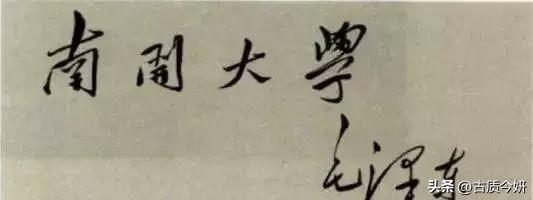 南開大學
毛泽东
头条 @古质今妍